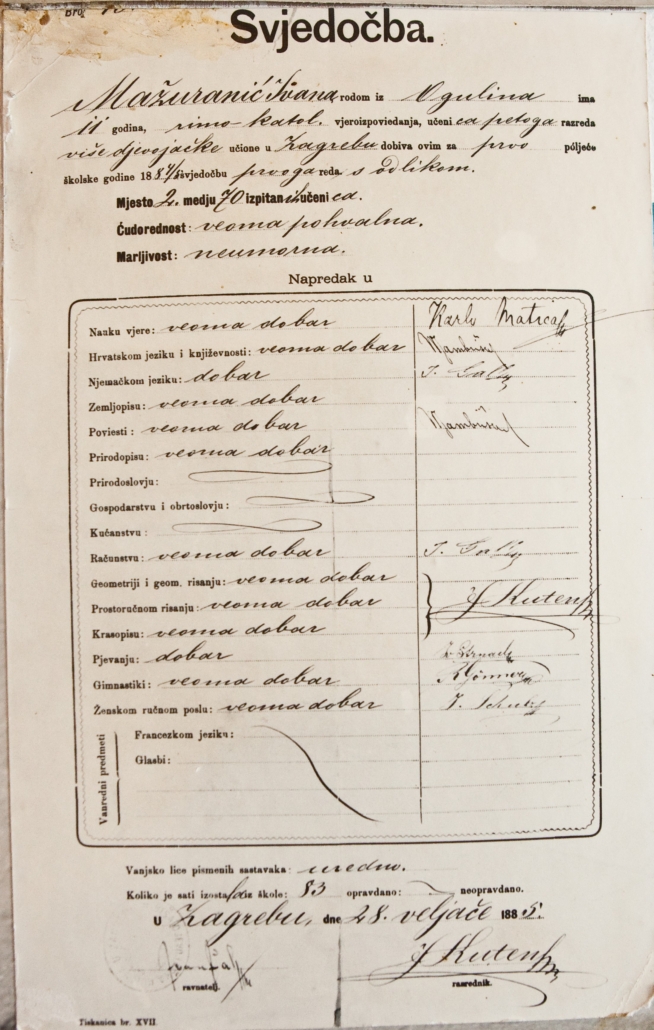 Broj
Svjedočba.
Mažuranić Ivana, rodom iz Ogulina ima
11 godina, rimo-katol. vjeroizpoviedanja, učenica petoga razreda
više djevojačke učione u Zagrebu dobiva ovim za prvo poljeće
školske godine 1884/5 svjedočbu prvoga reda s odlikom.
Mjesto 2. medju 70 izpitanih učenica.
Ćudorednost: veoma pohvalna.
Marljivost: neumorna.
Napredak u
Nauku vjere: veoma dobar Karlo Matica
Hrvatskom jeziku i književnosti: veoma dobar
Njemačkom jeziku: dobar
Zemljopisu: veoma dobar
Poviesti: veoma dobar
Prirodopisu: veoma dobar
Prirodoslovju:
Gospodarstvu i obrtoslovju:
Kućanstvu:
Računstvu: veoma dobar
Geometriji i geom. risanju: veoma dobar
Prostoručnom risanju: veoma dobar
Krasopisu: veoma dobar
Pjevanju: dobar
Gimnastiki: veoma dobar
Ženskom ručnom poslu: veoma dobar
Vanredni predmeti
Francezkom jeziku:
Glasbi:
Vanjsko lice pismenih sastavaka: uredno.
Koliko je sati izostala iz škole: 83 opravdano: neopravdano.
U Zagrebu, dne 28. veljače 1885.
ravnatelj. razrednik.
Tiskanica br. XVII.